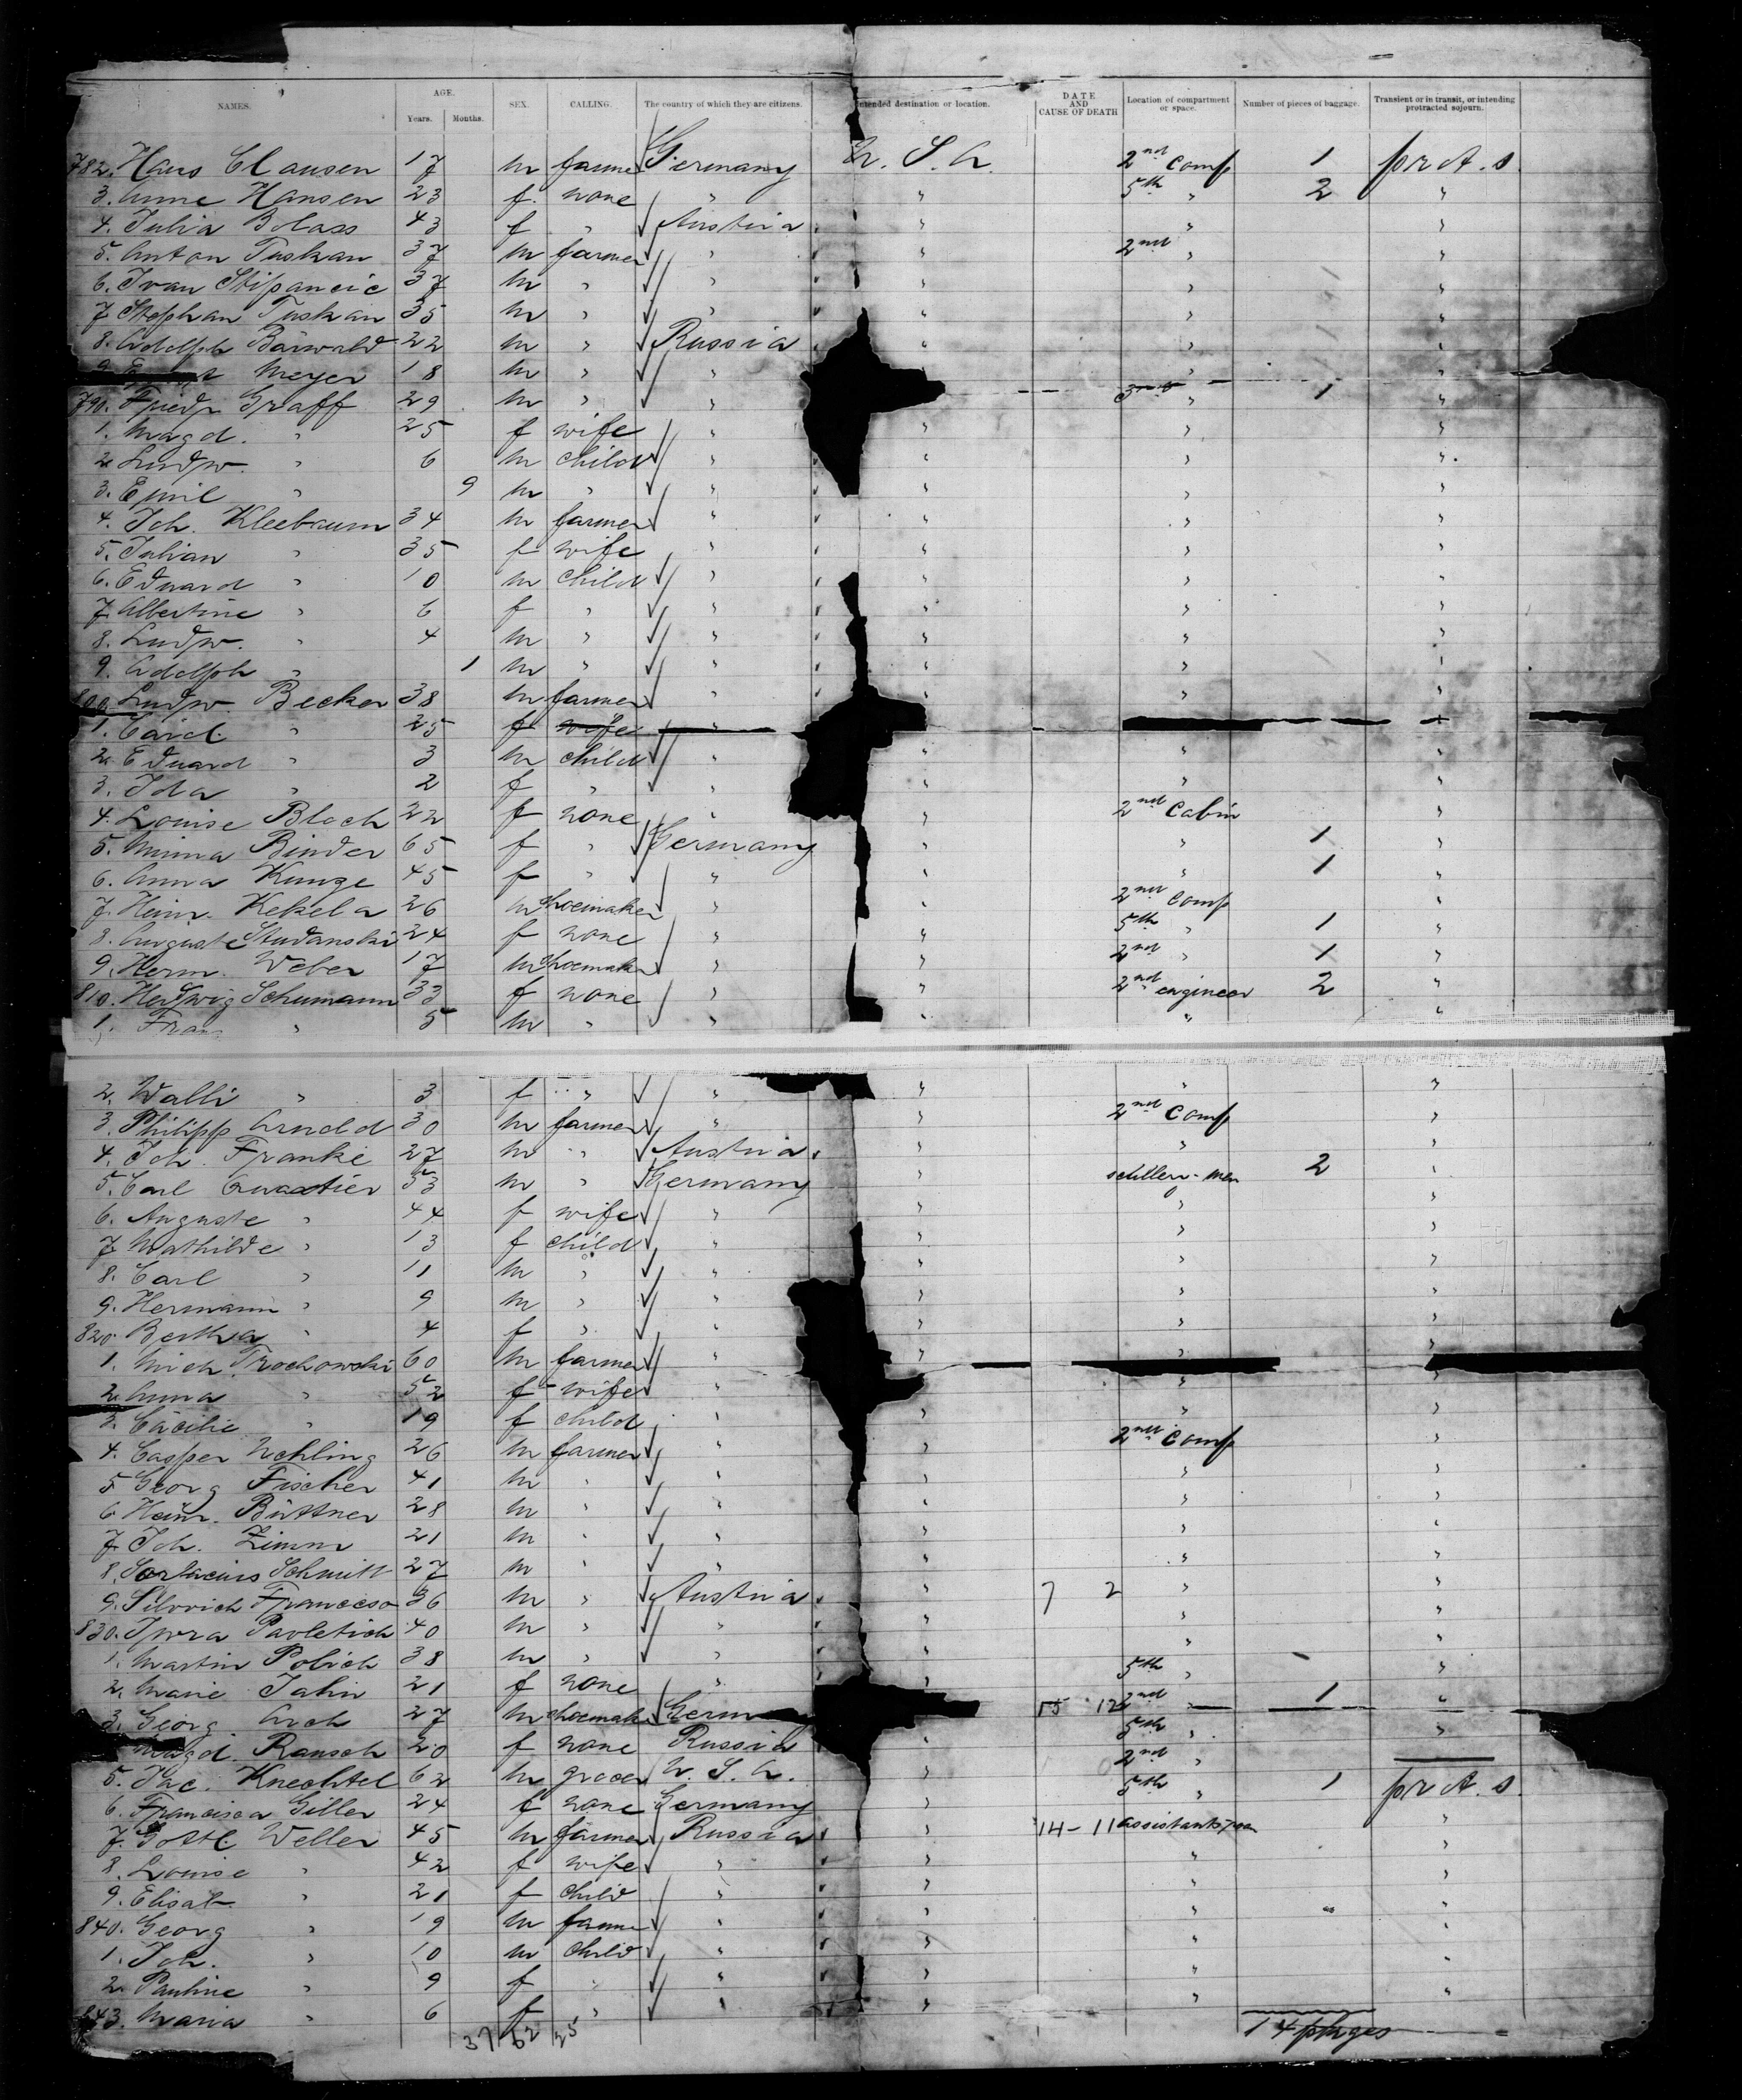 NAMES. AGE. Years. Months. SEX. CALLING. The country of which they are citizens. Intended destination or location. DATE AND CAUSE OF DEATH Location of compartment or space. Number of pieces of baggage. Transient or in transit, or intending protracted sojourn.
782. Hans Clausen 17 m farmer Germany U. S. A. 2nd comp 1 prot. s.
3. Anne Hansen 23 f. none " " 5th " 2 "
4. Julia Blass 43 f " Austria " " "
5. Anton Tuskan 37 m farmer " " 2nd " "
6. Ivan Stipancic 37 m " " " " "
7. Stephan Tuskan 35 m " " " " "
8. Adolph Bärwald 22 m " Russia " " "
9. Meyer 18 m " " " "
790. Friedr. Graff 29 m " " 3rd " 1 "
1. Magd. " 25 f wife " " " "
2. Ludw. " 6 m child " " " "
3. Emil " 9 m " " " " "
4. Joh. Kleebaum 34 m farmer " " " "
5. Julian " 35 f wife " " " "
6. Eduard " 10 m child " " " "
7. Albertine " 6 f " " " " "
8. Ludw. " 4 m " " " " "
9. Adolph " 1 m " " " " "
800. Ludw. Becker 38 m farmer " " "
1. " 25 f wife " "
2. Eduard " 3 m child " " " "
3. Ida " 2 f " " " " "
4. Louise Bloch 22 f none " " 2nd Cabin "
5. Minna Binder 65 f " Germany " " 1 "
6. Anna Kunze 45 f " " " " 1 "
7. Heinr. Kekela 26 m shoemaker " " 2nd comp "
8. Auguste Studanski 24 f none " " 5th " 1 "
9. Herm. Weber 17 m shoemaker " " 2nd " 1 "
810. Hedwig Schumann 33 f none " " 2nd engineer 2 "
1. " 5 m " " " " "
2. Walli " 3 f " " " " "
3. Philipp Arnold 30 m farmer " " 2nd comp "
4. Joh. Franke 27 m " Austria " " "
5. Carl 53 m " Germany " 2 "
6. Auguste " 44 f wife " " " "
7. Mathilde " 13 f child " " " "
8. Carl " 11 m " " " " "
9. Hermann " 9 m " " " " "
820. Bertha " 4 f " " " " "
1. Mich. Trochowski 60 m farmer " " " "
2. Anna " 52 f wife " " "
3. Cäcilie " 19 f child " " " "
4. Casper Uehling 26 m farmer " " 2nd comp "
5. Georg Fischer 41 m " " " " "
6. Heinr. Büttner 28 m " " " " "
7. Joh. Zimm 21 m " " " " "
8. Schmitt 27 m " " " " "
9. Francesco 36 m " Austria " 7 2 " "
830. Pavletich 40 m " " " " "
1. Martin Polich 38 m " " " " "
2. Marie Jahn 21 f none " " 5th " "
3. Georg 27 m shoemak " 15 12 2nd 1 "
Magd. Rausch 20 f none Russia 5th " "
5. Jac. Knechtel 62 m grocer U. S. A. " 2nd "
6. Francisca Giller 24 f none Germany " 5th " 1 prot. s.
7. Gottl. Weller 45 m farmer Russia " 14 - 11 "
8. Louise " 42 f wife " " " "
9. Elisab. " 21 f child " " " "
840. Georg " 19 m farmer " " " "
1. Joh. " 10 m child " " " "
2. Pauline " 9 f " " " " "
843. Maria " 6 f " " " " "
37 62 25